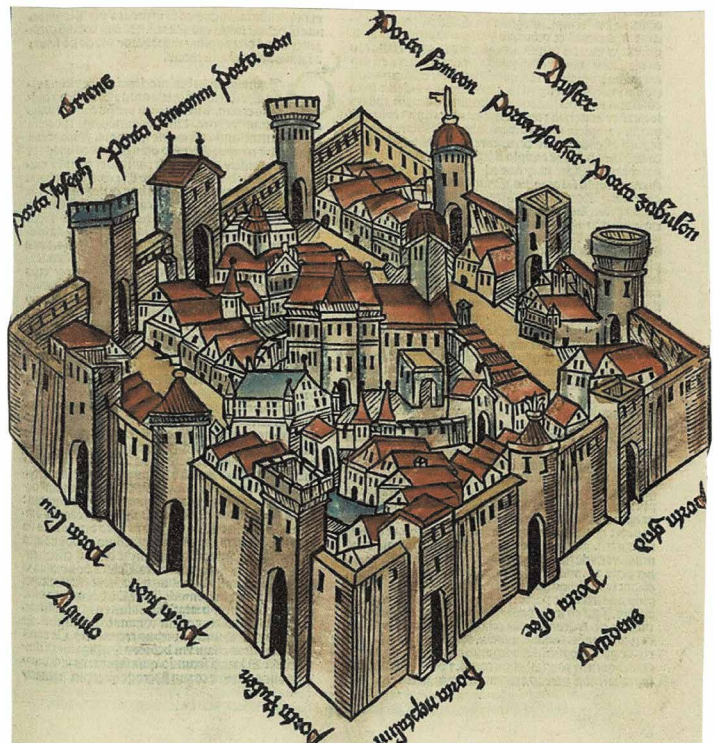 Oriens
porta Joseph
Porta beniamin
porta dan
Porta symeon
Auster
Porta ysachar
Porta zabulon
Porta gad
Porta aser
Occidens
Porta neptalim
Porta Ruben
Porta Juda
Porta leui
Aquilo